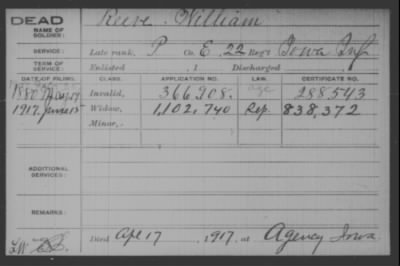 DEAD Reeve, William
NAME OF
SOLDIER:
SERVICE: Late rank, P Co. E, 22 Reg't Iowa Inf.
TERM OF
SERVICE: Enlisted , 1 Discharged , 1
DATE OF FILING. CLASS. APPLICATION NO. LAW. CERTIFICATE NO.
1880 Invalid, 366908. age 288543
1917. June 15 Widow, 1,102,740 Rep. 838,372
Minor,
ADDITIONAL
SERVICES:
REMARKS:
Died Apr 17, 1917, at Agency Iowa